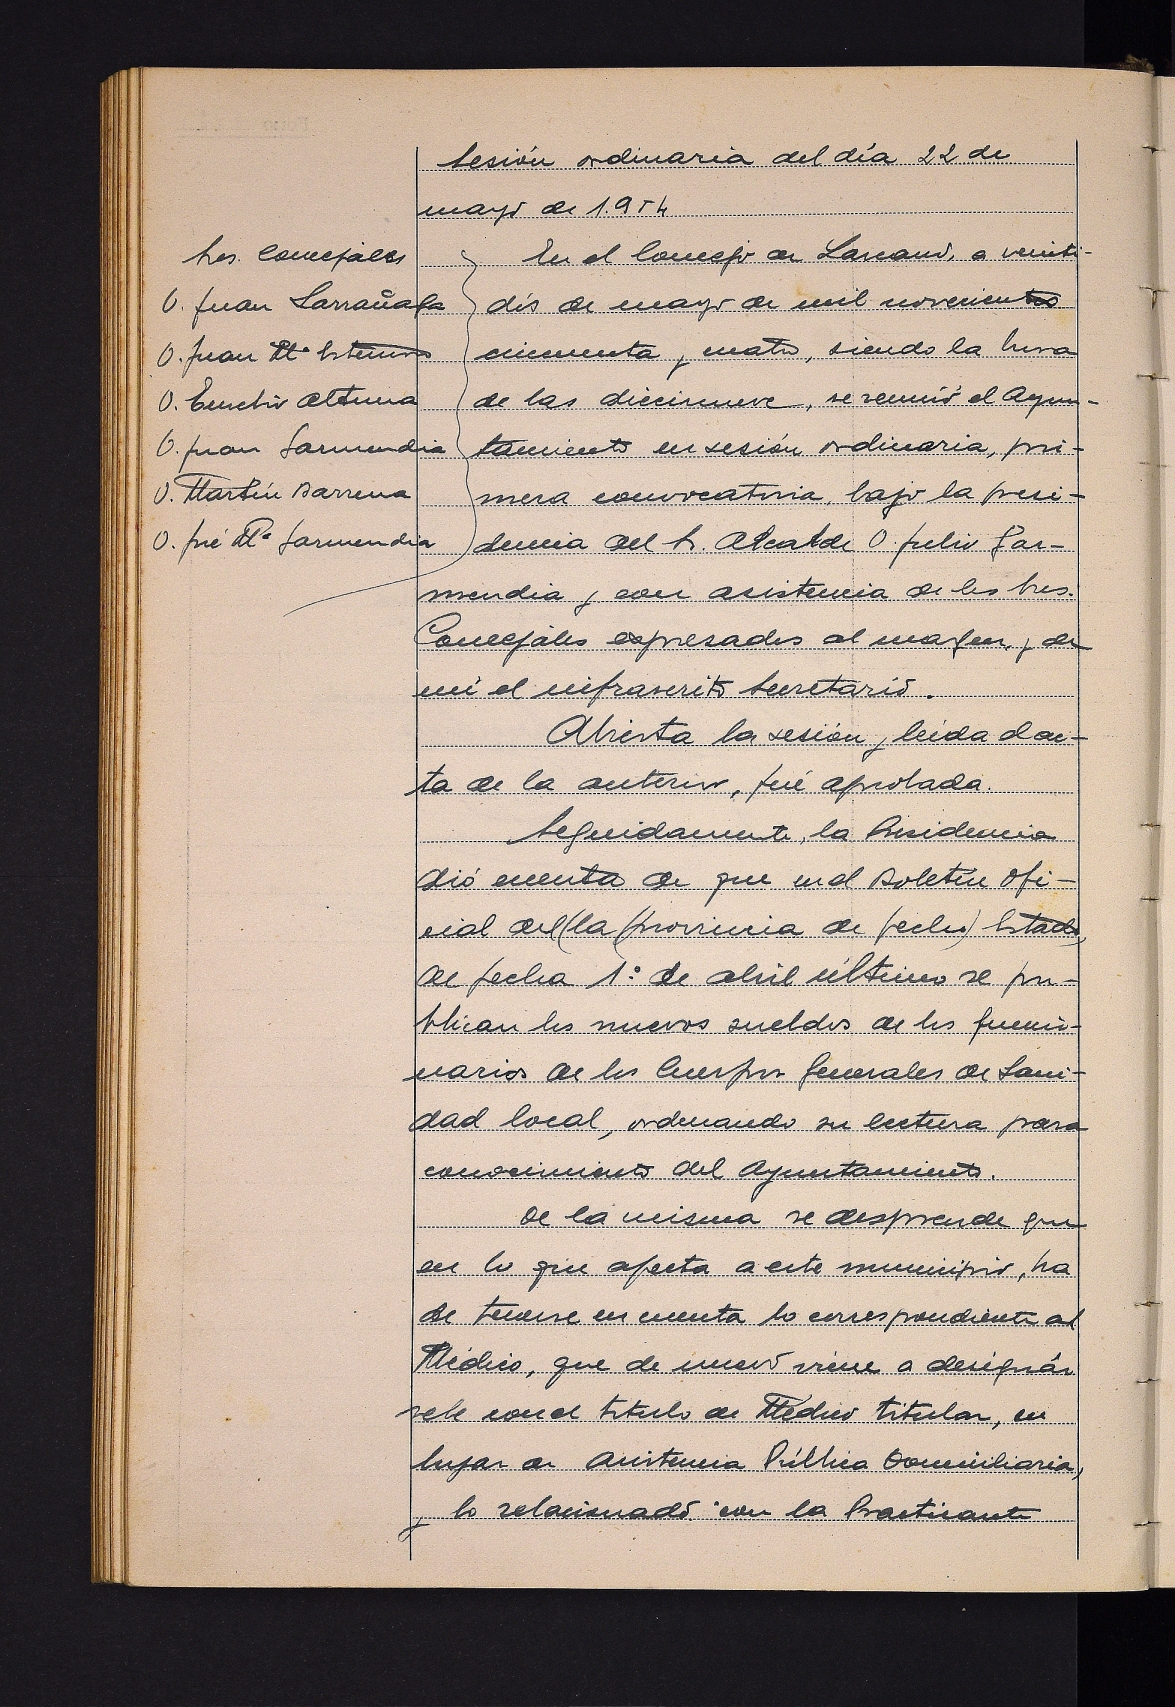 Sesión ordinaria del día 22 de
mayo de 1.954
Sres. Concejales
D. Juan Larrañaga
D. Juan Mª Estensoro
D. Eusebio Altuna
D. Juan Garmendia
D. Martín Barrena
D. José Mª Garmendia
En el Concejo de Lazcano, a veinti-
dós de mayo de mil novecientos
cincuenta y cuatro, siendo la hora
de las diecinueve, se reunió el Ayun-
tamiento en sesión ordinaria, pri-
mera convocatoria, bajo la presi-
dencia del Sr. Alcalde D. Julio Gar-
mendia y con asistencia de los Sres.
Concejales expresados al margen, y de
mí el infrascrito Secretario.
Abierta la sesión y leída el ac-
ta de la anterior, fué aprobada.
Seguidamente, la Presidencia
dió cuenta de que en el Boletín Ofi-
cial del (la provincia de fecha) Estado,
de fecha 1º de abril último se pu-
blican los nuevos sueldos de los funcio-
narios de los Cuerpos Generales de Sani-
dad local, ordenando su lectura para
conocimiento del Ayuntamiento.
De la misma se desprende que
en lo que afecta a este municipio, ha
de tenerse en cuenta lo correspondiente al
Médico, que de nuevo viene a designár
sele con el título de Médico titular, en
lugar de Asistencia Pública Domiciliaria,
y lo relacionado con la Practicante